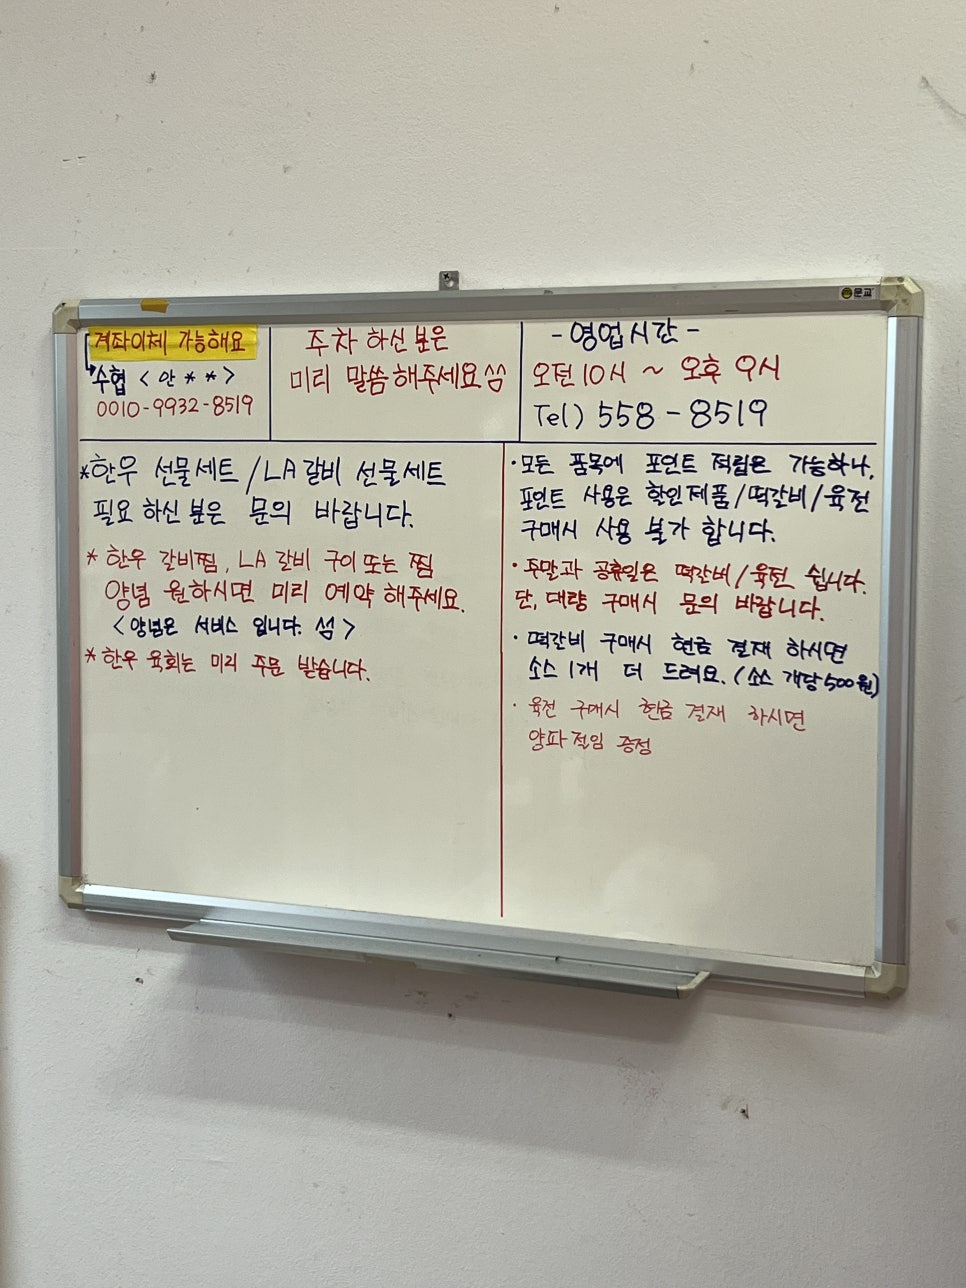 문교
계좌이체 가능해요
수협 < 안 * * >
0010-9932-8519
주차 하신 분은
미리 말씀해주세요
- 영업시간 -
오전 10시 ~ 오후 9시
Tel) 558-8519
*한우 선물세트 / LA갈비 선물세트
필요 하신 분은 문의 바랍니다.
* 한우 갈비찜, LA 갈비 구이 또는 찜
양념 원하시면 미리 예약 해주세요.
< 양념은 서비스 입니다. >
* 한우 육회는 미리 주문 받습니다.
· 모든 품목에 포인트 적립은 가능하나,
포인트 사용은 할인제품/떡갈비/육전
구매시 사용 불가 합니다.
· 주말과 공휴일은 떡갈비/육전 쉽니다.
단, 대량 구매시 문의 바랍니다.
· 떡갈비 구매시 현금 결재 하시면
소스 1개 더 드려요. (소스 개당 500원)
· 육전 구매시 현금 결재 하시면
양파절임 증정